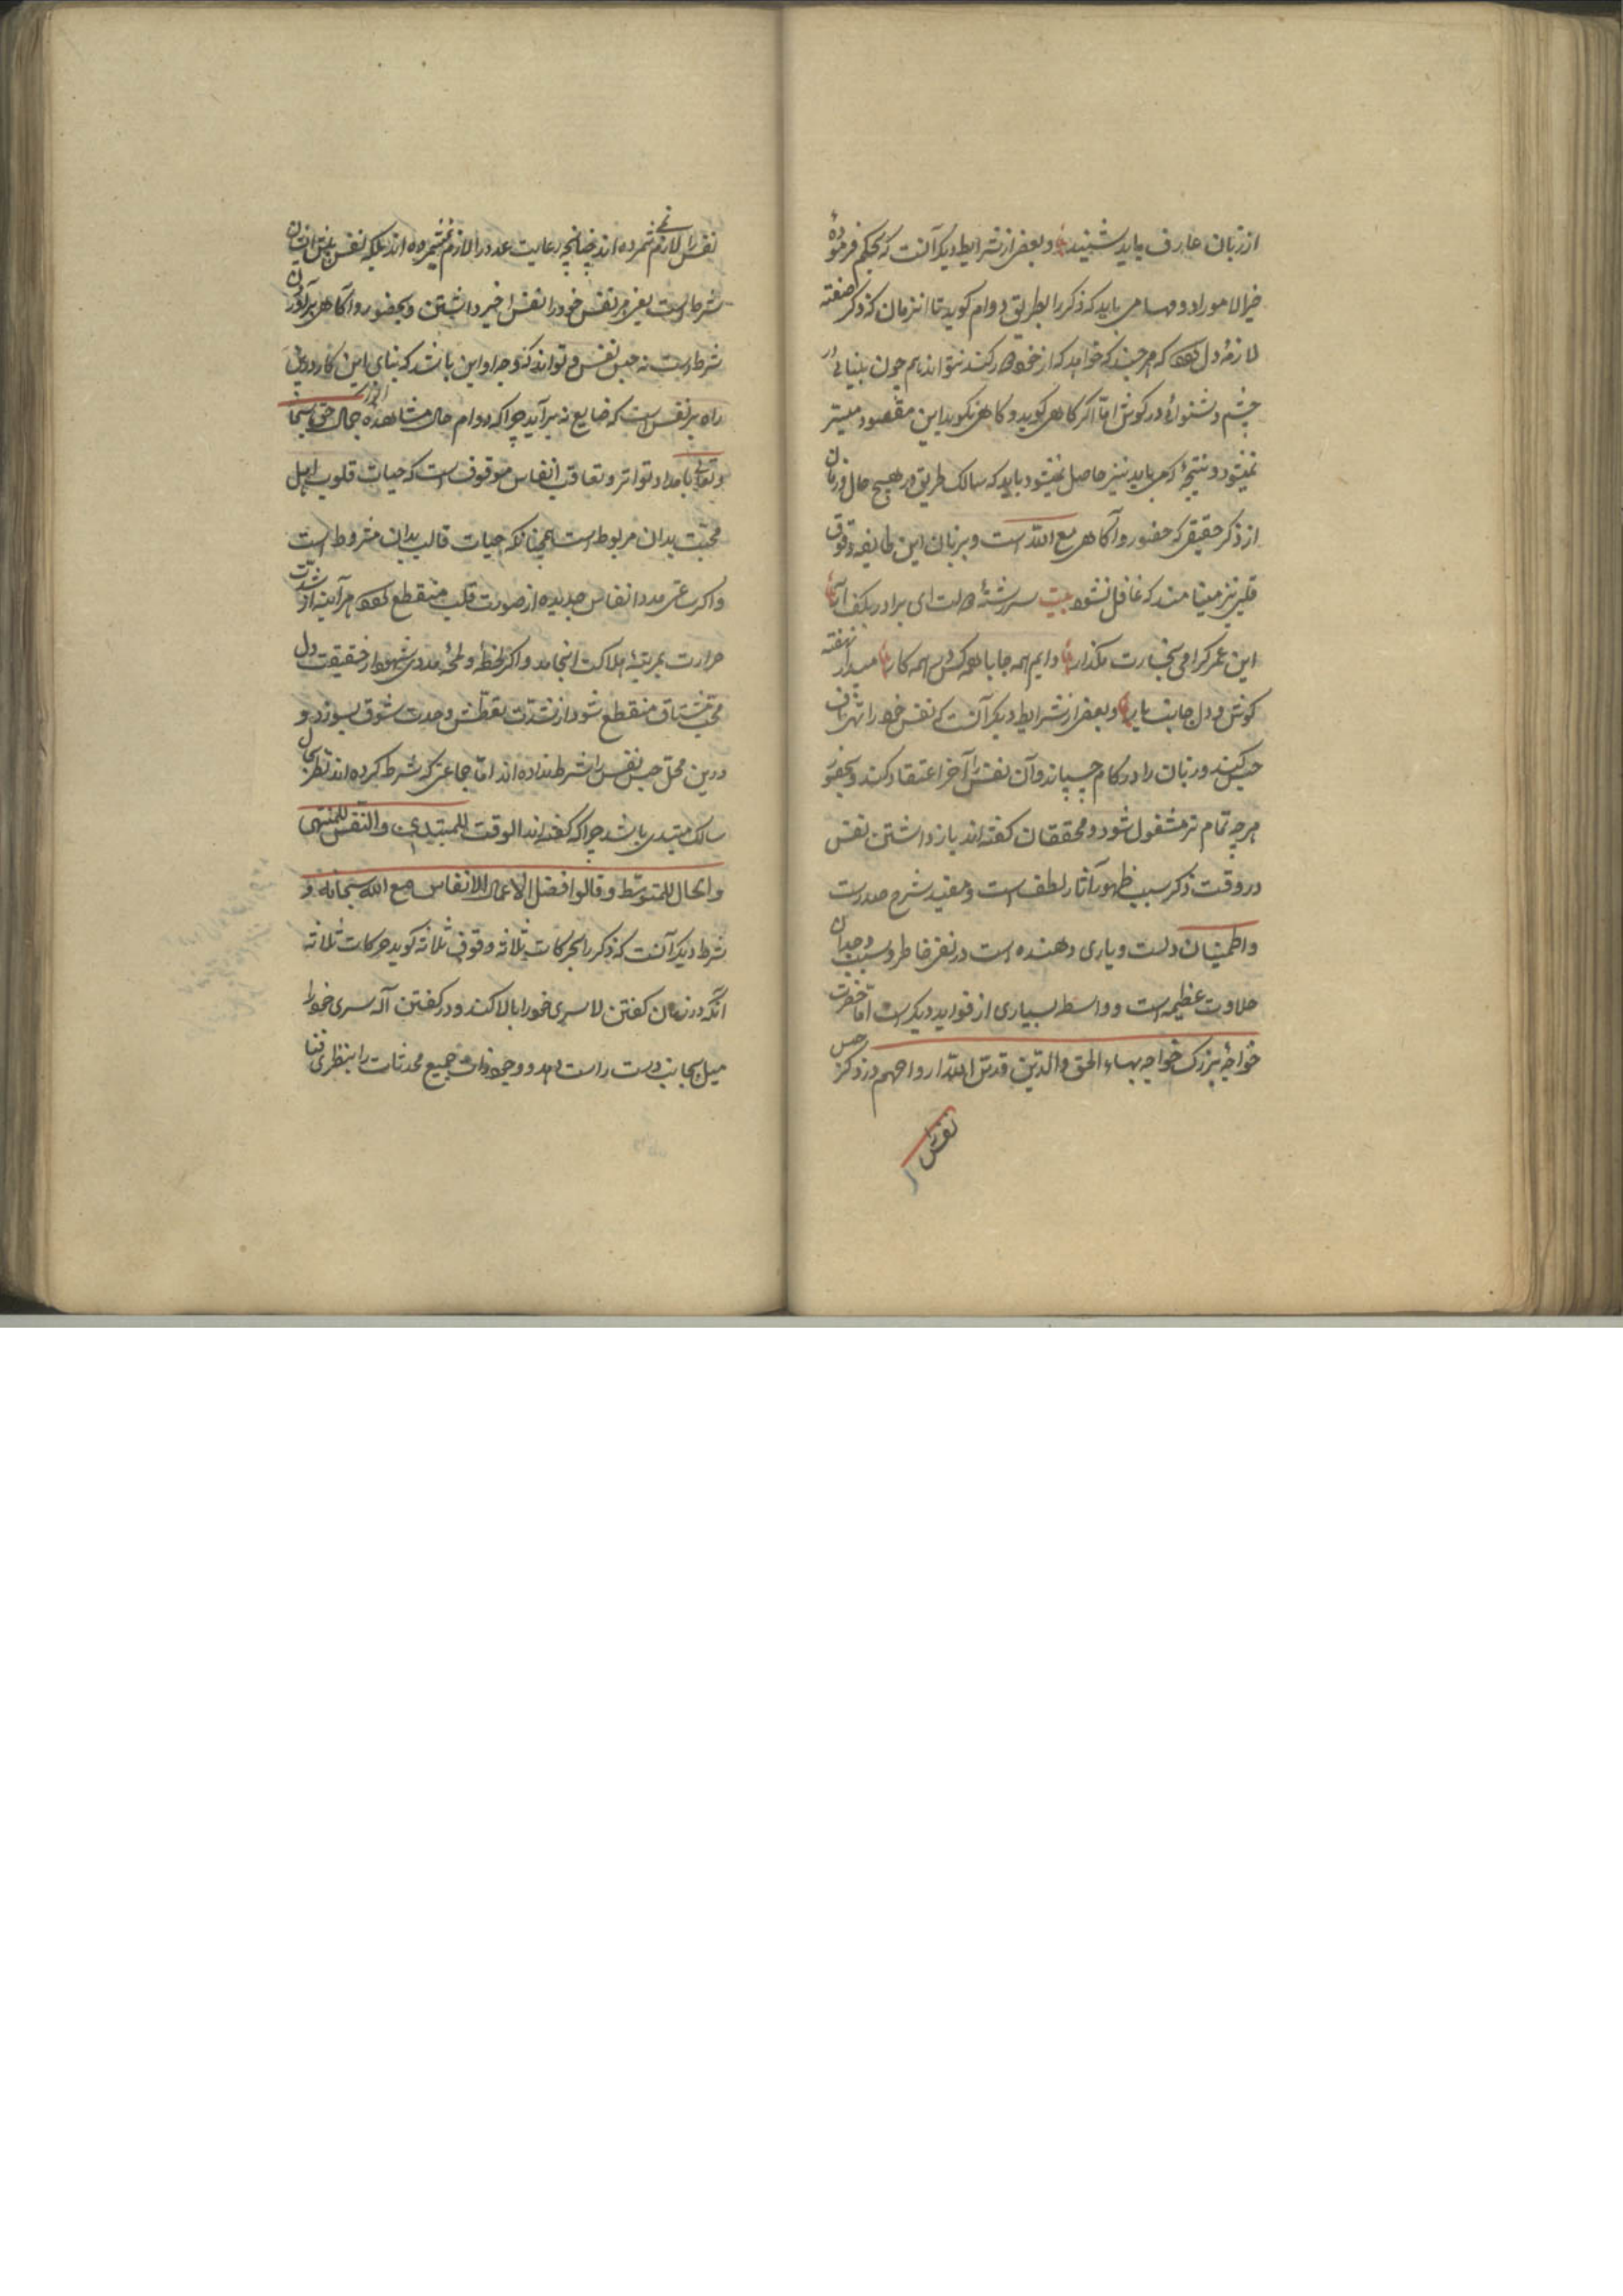 از زبان عارف باید شنید و بعضی از شرایط دیگر آنست که بحکم فرمودهٔ
خیر الامور ادومها می باید که ذکر را بطریق دوام کوید تا انزمان که ذکر صفته
لازمهٔ دل شود که هر چند که خواهد که از خود دور کند نتواند هم چون بینایی در
چشم و شنوائی در کوش اما اکر کاهی کوید و کاهی نکوید این مقصود میسر
نمیشود و نتیجهٔ که می باید نیز حاصل نمیشود باید که سالک طریق در هیچ حال و زمان
از ذکر حقیقی که حضور و آکاهی مع الله است و بر زبان این طایفه وقوف
قلبی نیز مینامند که غافل نشود بیت سر رشتهٔ دولت ای برادر بکف آر
این عمر کرامی بخسارت مکذار دایم همه جا با همه کس در همه کار میدار نهفته
کوش و دل جانب یار و بعضی از شرایط دیگر آنست که نفس خود را در زمان
حبس کند و زبان را در کام چسپاند و آن نفس را آخر اعتقاد کند و بحضور
هر چه تمام تر مشغول شود و محققان کفته اند باز داشتن نفس
در وقت ذکر سبب ظهور آثار لطف است و مفید شرح صدر است
و اطمینان دلست و یاری دهنده است در نفی خاطر و سبب وجدان
حلاوت عظیمه است و واسطه بسیاری از فواید دیکر است اما حضرت
خواجهٔ بزرک خواجه بهاء الحق والدین قدس الله ارواحهم در ذکر حبس
نفس را
نفس را لازم نمی شمرده اند چنانچه رعایت عدد را لازم نمی شمرده اند بلکه نفس
شرط است یعنی هر نفس خود را نفس اخیر داشتن و بحضور و آکاهی بر آوردن
شرط است نه حبس نفس و تواند که وجه او این باشد که بنای این کار درین
راه بر نفس است که ضایع نه بر آید چرا که دوام حال مشاهده جمال حق سبحانه
و تعالی بامداد تواتر و تعاقب انفاس موقوف است که حیات قلوب اهل
محبت بدان مربوط است همچنانکه حیات قالب بدان مشروط است
و اکر ساعتی مدد انفاس جدیده از صورت قلب منقطع شود هر آینه از شدت
حرارت بمرتبهٔ هلاکت انجامد و اکر لحظه و لمحهٔ مددی شهود از حقیقت دل
محب مشتاق منقطع شود از شدت تعطش وحدت شوق بسوزد و
درین محل حبس نفس را شرط نداده اند اما جماعتی که شرط کرده اند نظر بحال
سالک مبتدی باشد چرا که کفته اند الوقت للمبتدی والنفس للمنتهی
والحال للمتوسط و قالوا افضل الاعمال الانفاس مع الله سبحانه و
شرط دیگر آنست که ذکر را بحرکات ثلاثه و وقوف ثلاثه کوید حرکات ثلاثه
آنکه در زمان کفتن لا سری خود را بالا کند و در کفتن آله سری خود را
میل بجانب دست راست دهد و وجود ذات جمیع محدثات را بنظری فنا